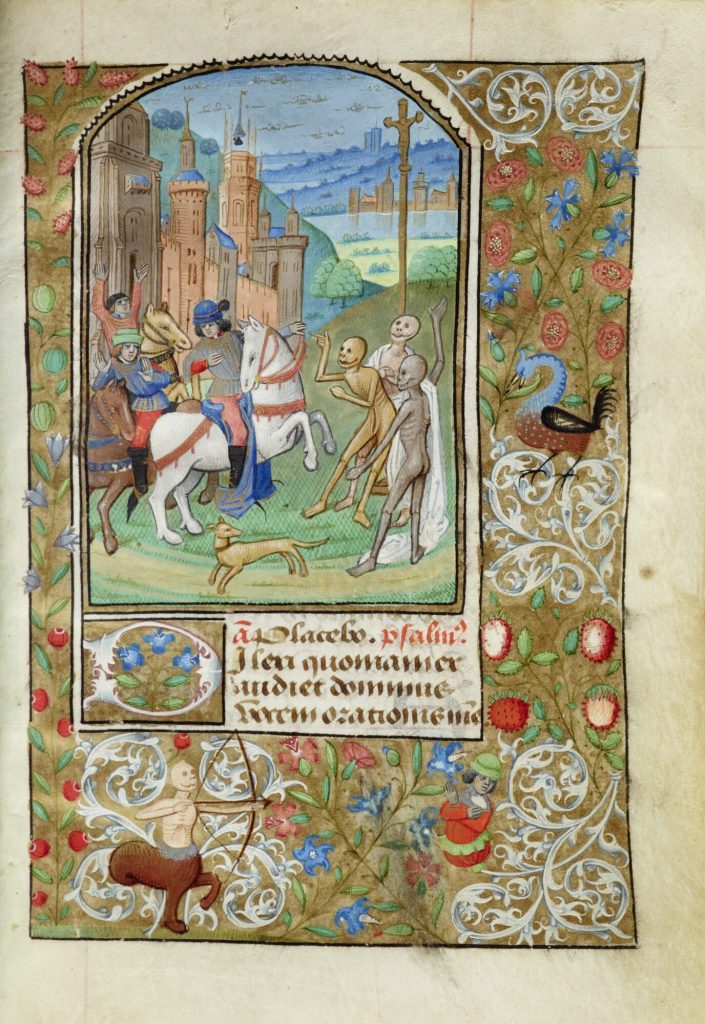 ā Placebo. psalm⁹
Dilexi quoniam ex
audiet dominus
vocem orationis mee